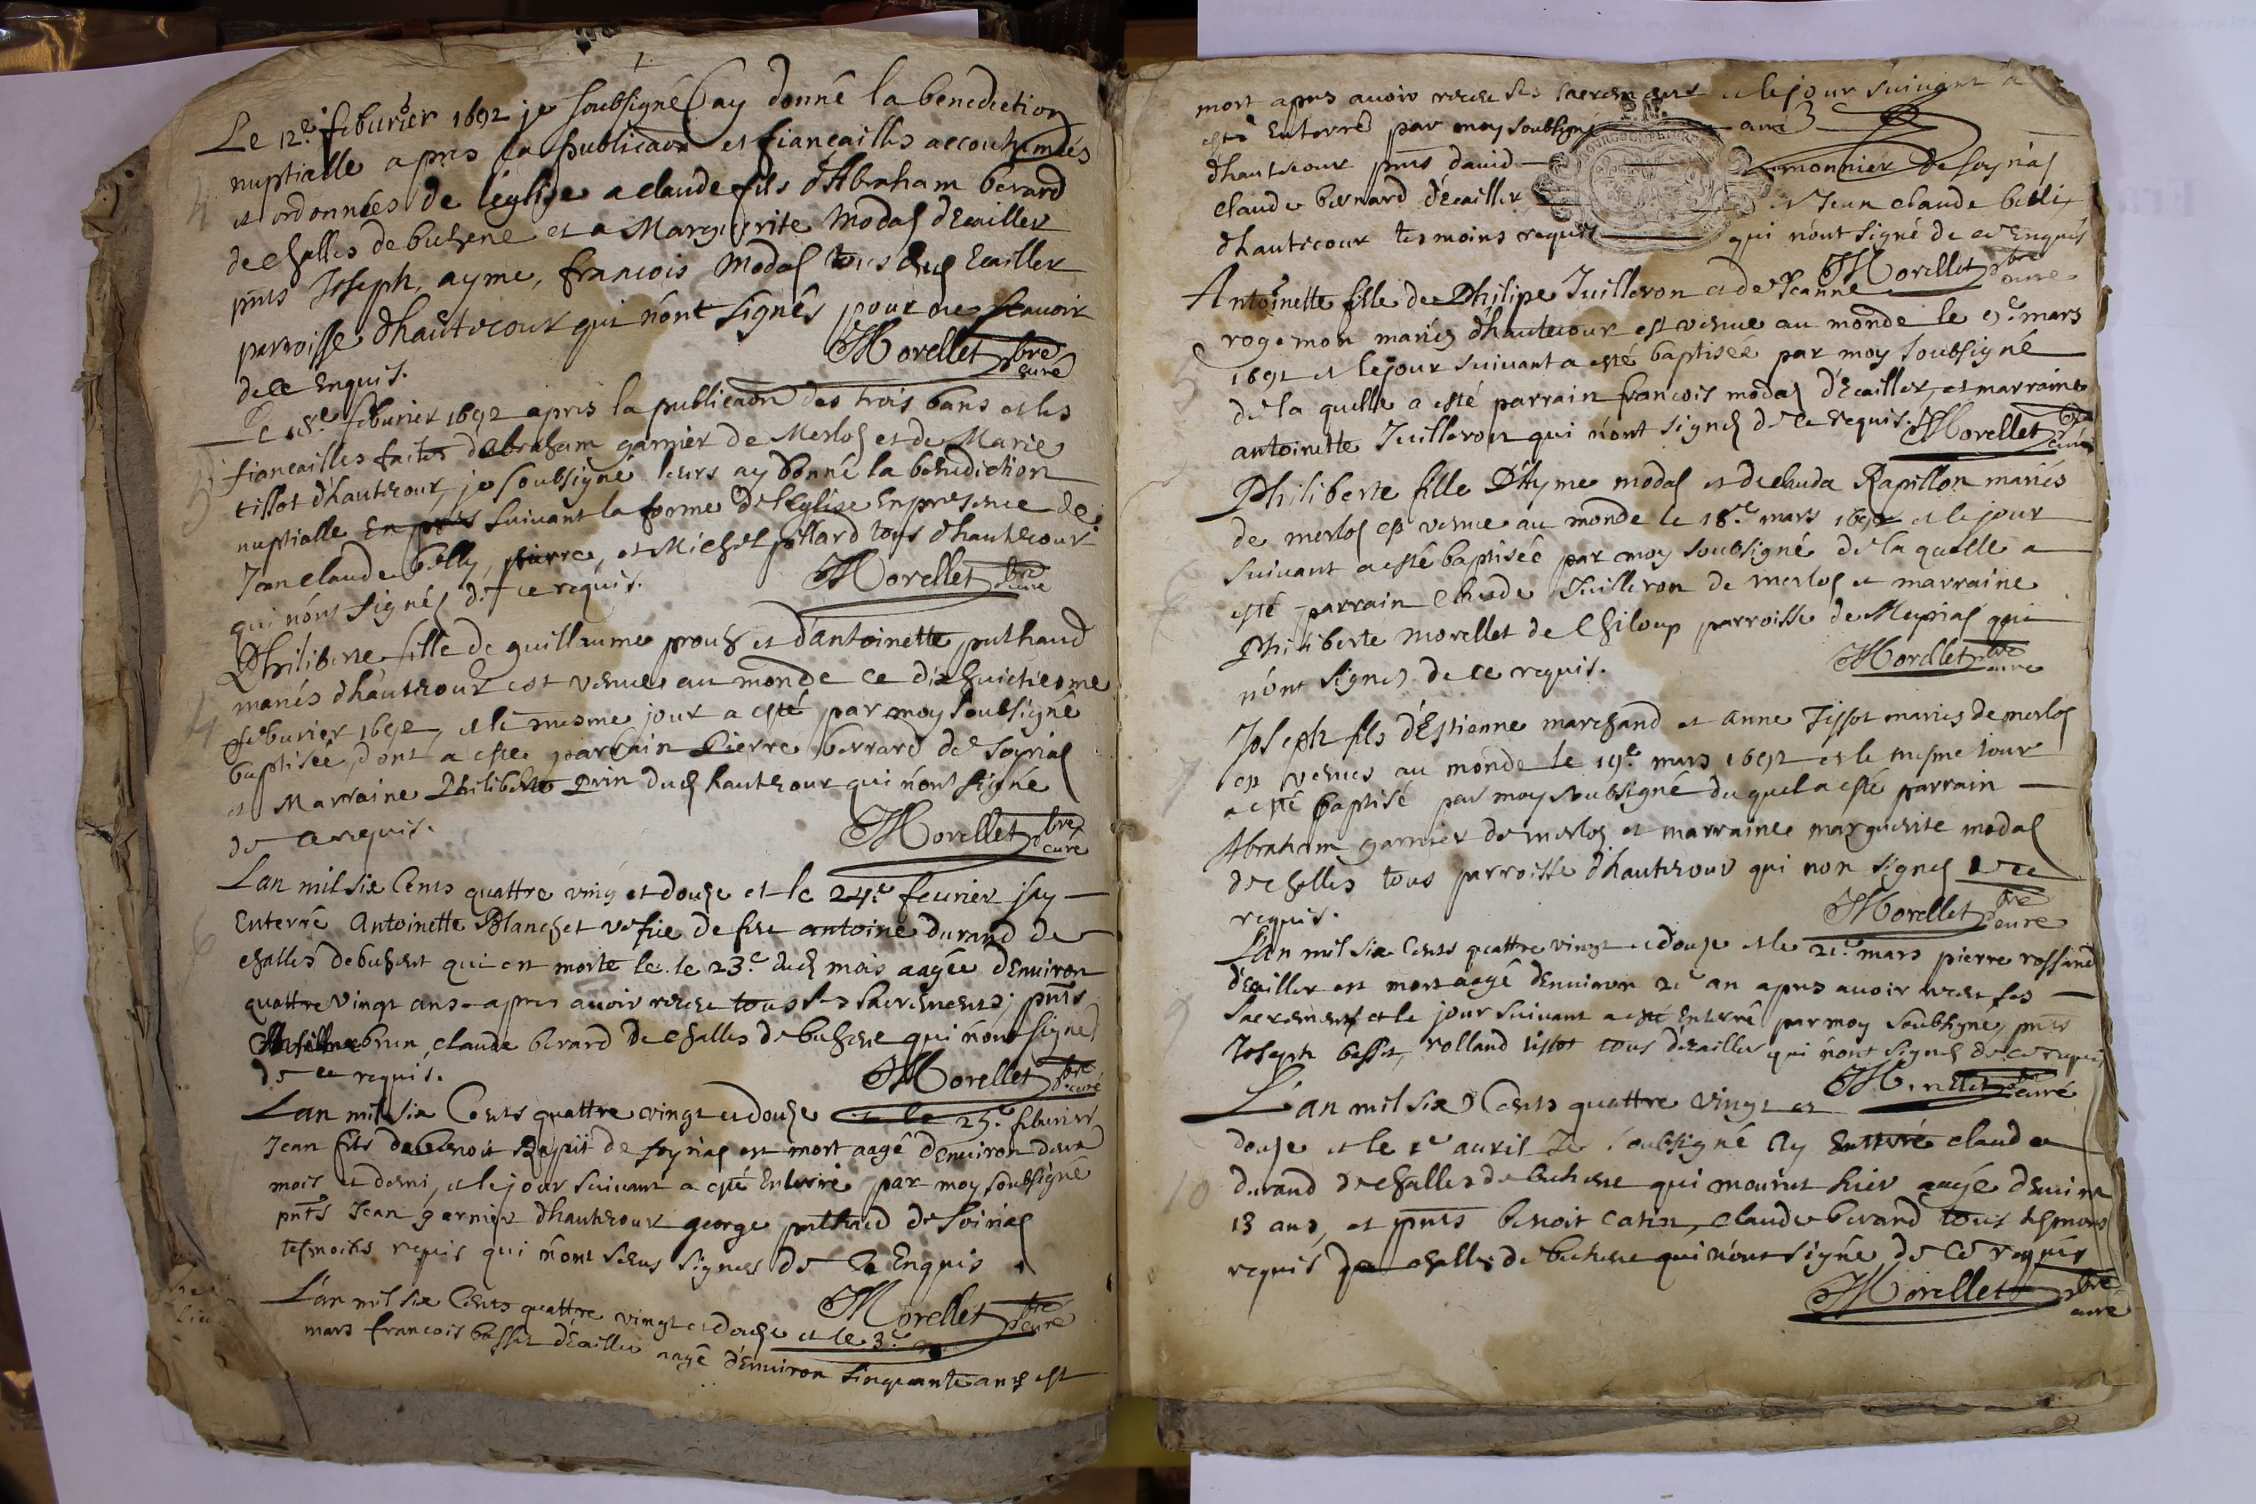 Le 12.e feburier 1692 je soubsigné ay donné la benediction
nuptialle apres la publicaon et fiancailles accoutumées
et ordonnées de l'église a claude fils d'Abraham berard
de challes de buhene et a Marguerite Modas d'Ecailler
pnts Joseph, ayme, francois Modas tous dud Ecailler
parroisse d'hautecour qui n'ont signés pour ne scavoir
de ce Enquis.
Morellet pbre curé
Le 18.e feburier 1692 apres la publicaon des trois bans et les
fiancailles faites d'abraham garnier de Merlos et de Marie
tissot d'hautecour, je soubsigné leurs ay donné la benediction
nuptialle suivant la forme de l'Eglise En presence de
Jean claude belly, pierre, et Michel pillard tous d'hautecour
qui n'ont signés de ce requis.
Morellet pbre curé
Philiberte fille de guillaume prouh et d'antoinette puthaud
mariés d'hautecour est venue au monde ce dix huictiesme
feburier 1692, et le mesme jour a esté par moy soubsigné
baptisée, dont a esté parrain Pierre berrard de soyrias
et Marraine Philiberte Prin dud hautecour qui n'ont signé
de ce requis.
Morellet pbre curé
L'an mil six Cents quattre ving et douze et le 24.e feurier j'ay
Enterré Antoinette Blanchet vefue de feu antoine durand de
challes de buhene qui est morte le. le 23.e dud mois aagée d'Enuiron
quattre vingt ans apres auoir receu tous ses sacrements; pnts
brun, claude berard de challes de buhene qui n'ont signé
de ce requis.
Morellet pbre curé
L'an mil six Cents quattre vingt et douze et le 25.e feburier
Jean fils de benoit de soyrias est mort aagé d'enuiron deux
mois et demi, et le jour suivant a esté Enterré par moy soubsigné
pnts Jean garnier d'hautecour george puthaud de soirias
tesmoins requis qui n'ont signés de ce Enquis
Morellet pbre curé
L'an mil six Cents quattre vingt et douze et le 3.e
mars francois basset d'Ecailler aagé d'Enuiron sinquante ans est
mort apres auoir receu ses sacrements et le jour suivant a
esté Enterré par moy soubsigné curé
d'hautecour pnts david monnier de soyrias
claude bernard d'écailler et Jean claude belli
d'hautecour tesmoins requis qui n'ont signé de ce Enquis
Morellet pbre curé
Antoinette fille de Philipe Juilleron et de Jeanne
rogemon mariés d'hautecour est venue au monde le 9.e mars
1692 et le jour suivant a esté baptisée par moy soubsigné
de la quelle a esté parrain francois modas d'Ecailler, et marraine
antoinette Juilleron qui n'ont signés de ce requis.
Morellet pbre curé
Philiberte fille D'Ayme modas et de clauda Rapillon mariés
de merlos est venue au monde le 18.e mars 1692 et le jour
suivant a esté baptisée par moy soubsigné de la quelle a
esté parrain Claude Juilleron de merlos et marraine
Philiberte morellet de Chiloup parroisse de Meyrias qui
n'ont signés de ce requis.
Morellet pbre curé
Joseph fils d'Estienne marchand et anne Tissot mariés de merlos
est venus au monde le 19.e mars 1692 et le mesme jour
a esté baptisé par moy soubsigné du quel a esté parrain
Abraham garnier de merlos et marraine marguerite modas
de challes tous parroisse d'hautecour qui non signes de ce
requis.
Morellet pbre curé
L'an mil six Cents quattre vingt et douze et le 21.e mars pierre rossand
d'Ecailler est mort aagé d'enuiron an apres auoir receu ses
sacrements et le jour suivant a esté Enterré par moy soubsigné, pnts
Joseph basset, rolland tissot tous d'ecailler qui n'ont signés de ce requis
Morellet pbre curé
L'an mil six Cents quattre vingt et
douze et le 1.e auril Je soubsigné Ay Enterré claude
durand de challes de buhene qui mourut hier aagé d'enuiron
13 ans, et pnts benoit catin, claude berard tous tesmoins
requis de challes de buhene qui n'ont signé de ce requis
Morellet pbre curé